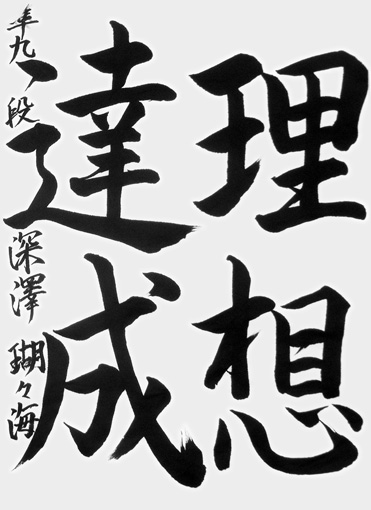 理想
達成
準九段 深澤 瑚々海